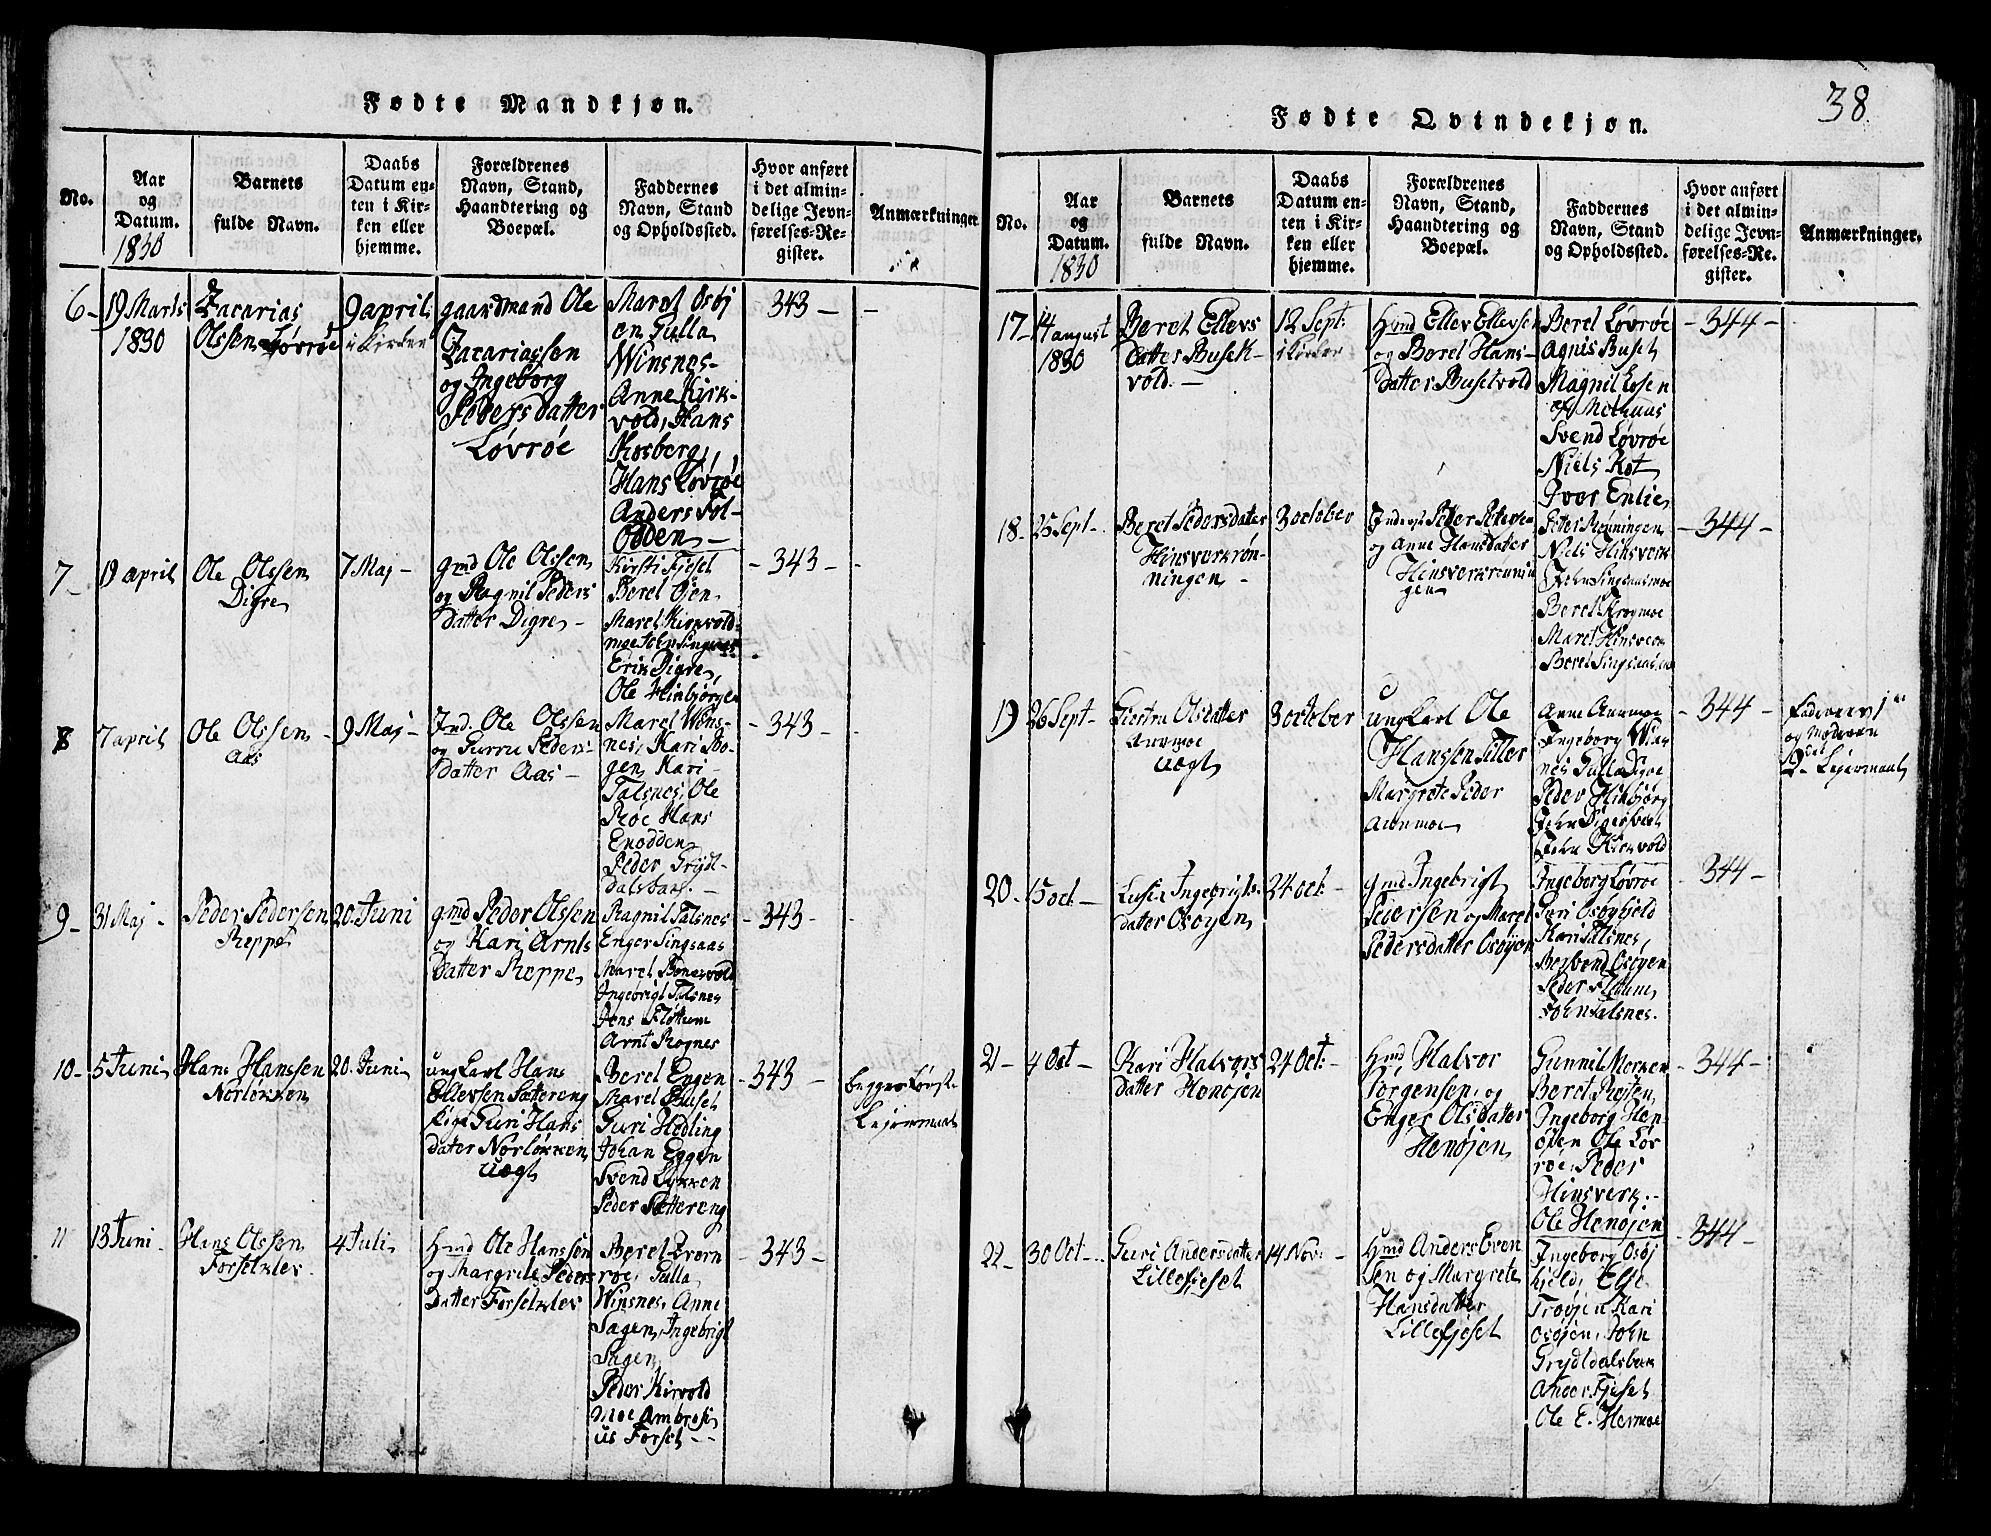 Fødte Mandkjøn.
No.
Aar
og
Datum.
1830
Barnets
fulde Navn.
Daabs
Datum en-
ten i Kir-
ken eller
hjemme.
Forældrenes
Navn, Stand,
Haandtering og
Boepæl.
Faddernes
Navn, Stand
og Opholdssted.
Hvor anført
i det almin-
delige Jevn-
førelses-Re-
gister.
Anmærkninger.
6-
19 Marts
1830
Zacarias
Olssen Løvrøe
9 april
i Kirken
gaardmand Ole
Zacariassen
og Ingeborg
Pedersdatter
Løvrøe
Maret Osøj
en, Gulla
Winsnes-
Anne Kirk-
vold, Hans
Kosberg,
Hans Løvrøe
Anders Fol-
odden -
- 343 -
-
7-
19 april
Ole Olssen
Digre
7 Maj -
gmd Ole Olssen
og Ragnil Peders
datter Digre -
Kirsti Fjeset
Beret Øien
Maret Kirkvold-
moe John Singsaas
Erik Digre,
Ole Hinbjørgen
- 343 -
-
8
7 april
Ole Olssen -
Aas
9 Maj -
Ind: Ole Olssen
og Gurru Peders-
datter Aas -
Maret Wins-
nes, Kari Bo-
gen, Kari-
Talsnes, Ole
Røe Hans
Enodden
Peder Grydt-
dalsbak. -
- 343 -
-
9-
31 Maj -
Peder Pedersen
Reppe
20 Juni
gmd Peder Olssen
og Kari Arnts
datter Reppe
Ragnil Talsnes
Enger Singsaas
Maret Bonesvold
Ingebrigt Talsnes
Jens Fløttum
Arnt Rognes
- 343 -
-
10-
5 Juni
Hans Hanssen
Norløkken
20. Juni -
ungkarl Hans
Ellevsen Sættereng
Pige Guri Hans
datter Norløkken
uægt
Beret Engen
Maret Buset
Guri Hedling
Johan Eggen
Svend Løkken
Peder Sættereng
- 343 -
begges første
Lejermaal
11
13 Juni -
Hans Olssen
Forsetklev -
4 Juli
Hmd Ole Hanssen
og Margrite Peders
datter Forsetklev
Beret Evern
røe, Gulla
Winsnes, Anne
Sagen, Ingebrigt
Sagen
Peder Kirvold
moe Ambrosi
us Forset - -
- 343 -
Fødte Qvindekjøn.
38
No.
Aar
og
Datum.
1830
Barnets
fulde Navn.
Daabs
Datum en-
ten i Kir-
ken eller
hjemme.
Forældrenes
Navn, Stand,
Haandtering og
Boepæl.
Faddernes
Navn, Stand
og Opholdssted.
Hvor anført
i det almin-
delige Jevn-
førelses-Re-
gister.
Anmærkninger.
17-
14 august
1830
Beret Ellevs
datter Busetk-
vold. -
12 Sept:
i Kirken
Hmd Ellev Ellevsen
og Beret Hans-
datter Busetvold
Beret Løvrøe
Agnis Buset
Magnil Losen
af Melhuus
Svend Løvrøe
Niels Kot
Iver Enlie
- 344 -
18-
25 Sept -
Beret Pedersdatter
Hinsverkrøn-
ningen -
3 october
Inderst Petter Petterse-
og Anne Hansdatter
Hinsverkrønnin
gen
Peter Rønningen
Niels Hinsverk
John Singsaasmoe
Beret Krogmoe
Maret Hinsverk
Beret Singsaas
- 344 -
19
26 Sept -
Giertru Olsdatter
Aunmoe
uægt
3 october
ungkarl Ole
Hanssen Tiller
Margrete Peder
Aunmoe
Anne Aunmoe
Ingeborg Wins
nes Gulla Digre
Peder Hinbjørg
John Digersvedt
John Kirkvold
- 344 -
Faderens 1ste
og Moderen
2det Lejermaal
20-
15 oct -
Lusie Ingebrigts-
datter Osøyen
24 oct: -
gmd Ingebrigt
Pedersen og Maret
Pedersdatter Osøyen
Ingeborg Løvrøe
Guri Osøyhjeld
Kari Talsnes,
Berbend Osøyen
Peder Fløttum
John Talsnes.
344 -
21 -
4 Oct -
Kari Halvors
datter Henøjen
24 Oct: -
Hmd Halvor
Jørgensen, og
Enger Olsdatter
Henøjen
Gunnil Morken
Beret Resten,
Ingeborg Hen-
øjen Ole Løv
røe, Peder
Hinsverk.-
Ole Henøjen
- 344 -
22 -
30 Oct -
Guri Andersdatter
Lillefjeset
14 Nov:
Hmd Anders Even
sen og Margrete
Hansdatter
Lillefjeset
Ingeborg Osøj
hjeld, Else
Trøøjen Kari
Osøjen, John
Grydtdalsbak
Ander Fjeset
Ole E. Hermoe
- 344 -